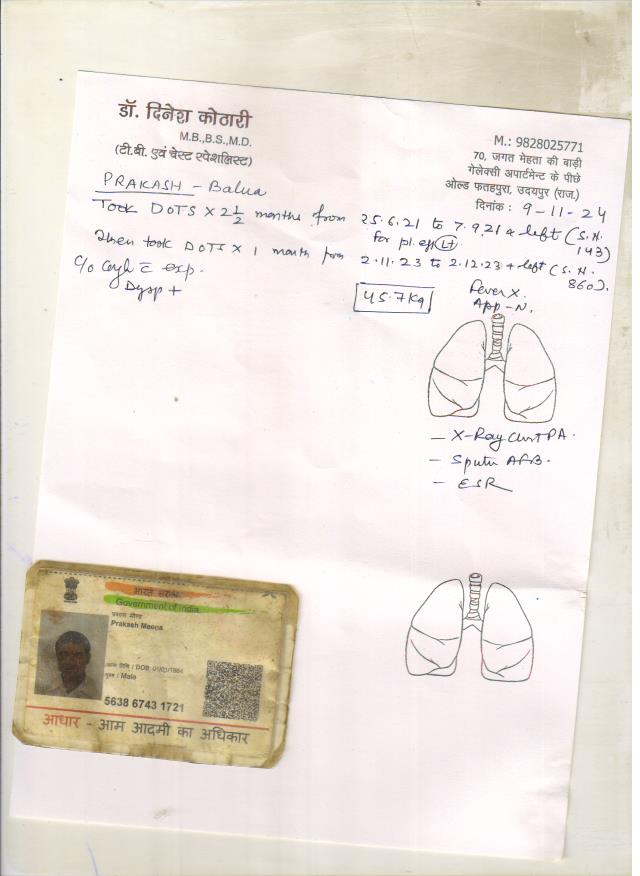 डॉ. दिनेश कोठारी
M.B.,B.S.,M.D.
(टी.बी. एवं चेस्ट स्पेशलिस्ट)
M.: 9828025771
70, जगत मेहता की बाड़ी
गेलेक्सी अपार्टमेन्ट के पीछे
ओल्ड फतहपुरा, उदयपुर (राज.)
दिनांक: 9-11-24
PRAKASH - Balua
Took DOTS x 2 1/2 months from 25.6.21 to 7.9.21 & left (S.N. 143)
for pl. eff (Lt)
Then took DOTS x 1 month from 2.11.23 to 2.12.23 & left (S.N. 860).
C/o Cough c̄ exp.
Dysp +
45.7 Kg
Fever X.
App - N.
- X-Ray Chest PA.
- Sputu AFB.
- ESR
भारत सरकार
Government of India
प्रकाश मीणा
Prakash Meena
जन्म तिथि / DOB: 01/01/1984
पुरुष / Male
5638 6743 1721
आधार - आम आदमी का अधिकार